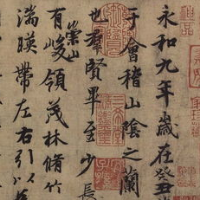 永和九年歲在癸丑
于會稽山陰之蘭
也羣賢畢至少長
崇山
有峻領茂林脩竹
湍暎帶左右引以